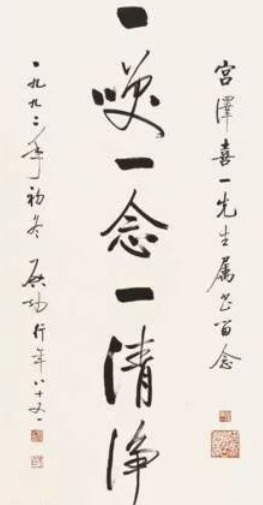 宫澤喜一先生属书留念
一咲一念一清浄
一九九二年初冬 启功 行年八十又一